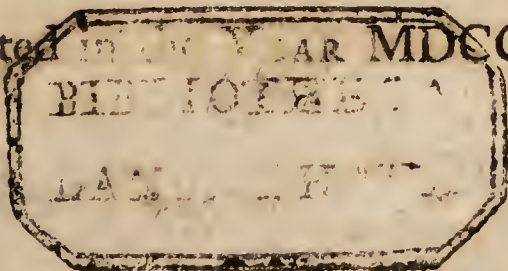 ted IN THE YEAR MDCC
BIBLIOTHECA